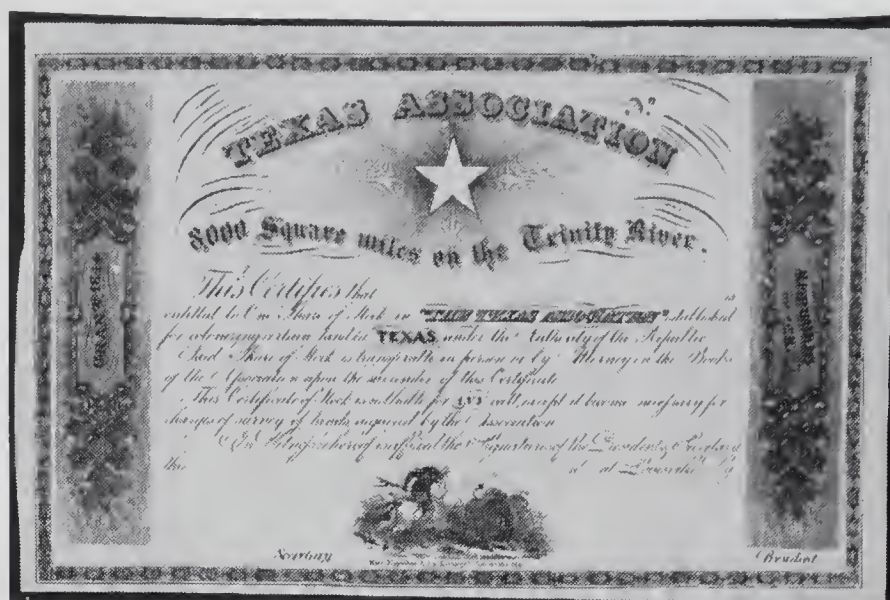 TEXAS ASSOCIATION
8,000 Square miles on the Trinity River.
This Certifies that is
entitled to One Share of Stock in "THE TEXAS ASSOCIATION" established
for colonizing certain land in TEXAS under the Authority of the Republic
Said Share of Stock is transferable in person or by Attorney on the Books
of the Association upon the surrender of this Certificate
This Certificate of Stock is not liable for any call except it become necessary for
charges of survey of lands acquired by the Association
In Witness the Signature of the President & Secretary
this at
Secretary President